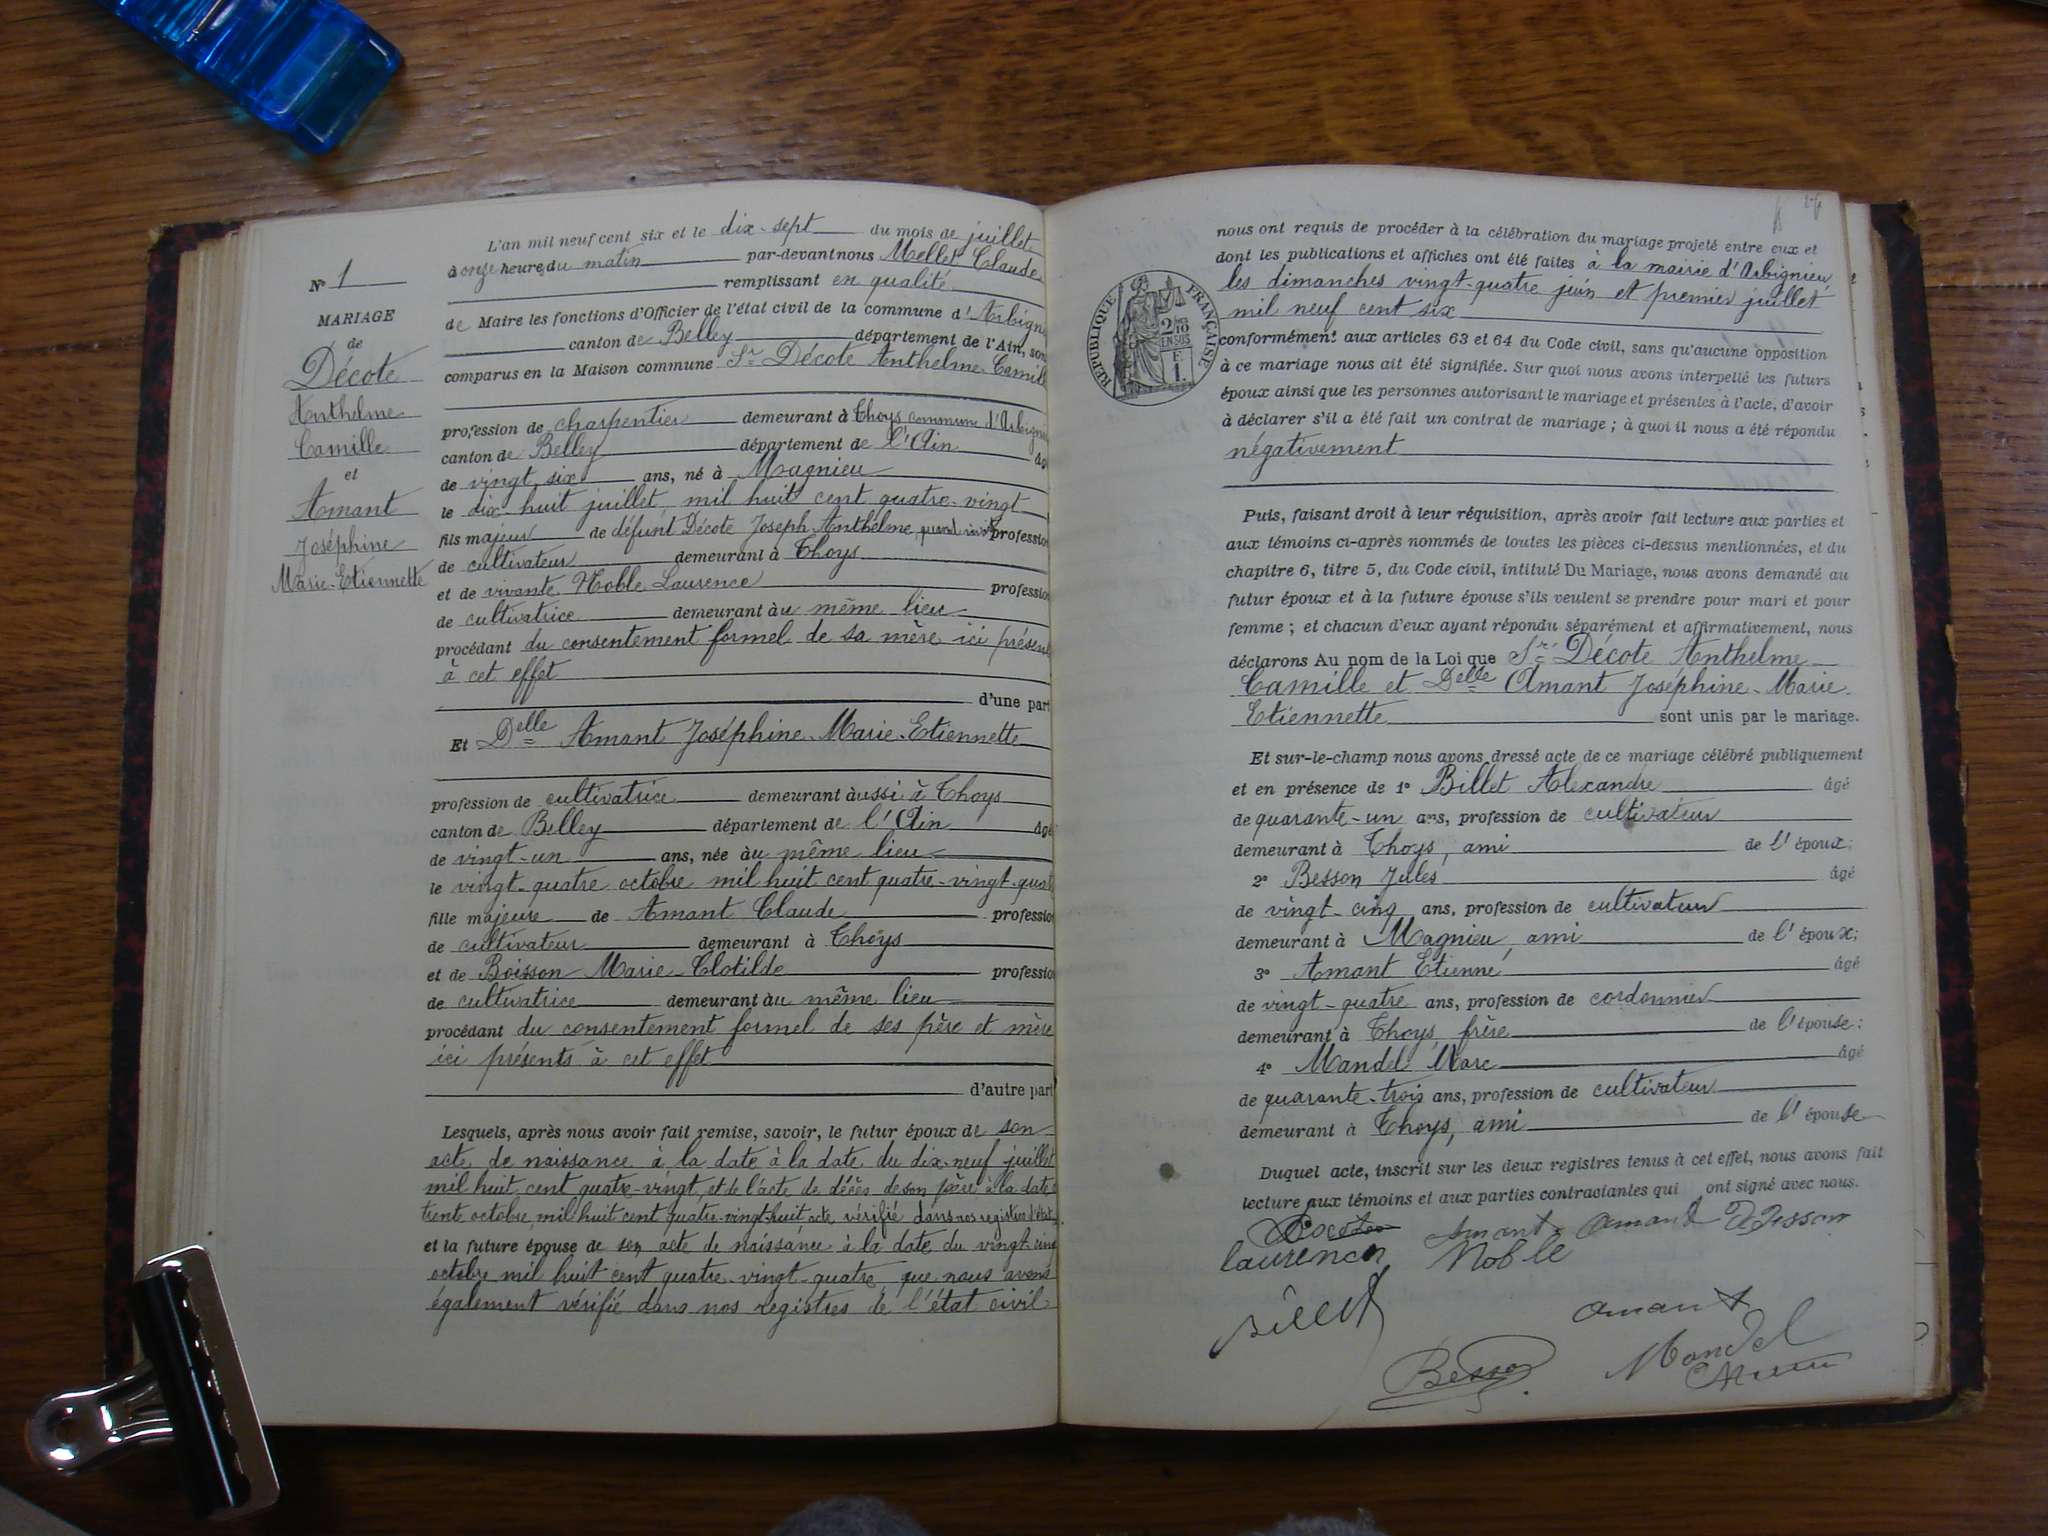 N° 1
MARIAGE
de
Décote
Anthelme
Camille
et
Amant
Joséphine
Marie-Etiennette
L'an mil neuf cent six et le dix-sept du mois de juillet
à onze heures du matin par-devant nous Mellet Claude
remplissant en qualité
de Maire les fonctions d'Officier de l'état civil de la commune d'Arbignieu
canton de Belley département de l'Ain, sont
comparus en la Maison commune Sr Décote Anthelme Camille
profession de charpentier demeurant à Thoys commune d'Arbignieu
canton de Belley département de l'Ain âgé
de vingt six ans, né à Magnieu
le dix huit juillet mil huit cent quatre-vingt
fils majeur de défunt Décote Joseph Anthelme, quand vivait profession
de cultivateur demeurant à Thoys
et de vivante Noble Laurence profession
de cultivatrice demeurant àu même lieu
procédant du consentement formel de sa mère ici présente
à cet effet
d'une part
Et Delle Amant Joséphine-Marie-Etiennette
profession de cultivatrice demeurant àussi à Thoys
canton de Belley département de l'Ain âgé
de vingt-un ans, née àu même lieu
le vingt-quatre octobre mil huit cent quatre-vingt-quatre
fille majeure de Amant Claude profession
de cultivateur demeurant à Thoys
et de Boisson Marie-Clotilde profession
de cultivatrice demeurant àu même lieu
procédant du consentement formel de ses père et mère
ici présents à cet effet
d'autre part
Lesquels, après nous avoir fait remise, savoir, le futur époux de son
acte de naissance à la date à la date du dix-neuf juillet
mil huit cent quatre-vingt, et de l'acte de décès de son père à la date
trente octobre mil huit cent quatre-vingt-huit acte vérifié dans nos registres d'état
et la future épouse de son acte de naissance à la date du vingt-cinq
octobre mil huit cent quatre-vingt-quatre que nous avons
également vérifié dans nos registres de l'état civil
RÉPUBLIQUE FRANÇAISE
2/10
EN SUS
F.
1.
nous ont requis de procéder à la célébration du mariage projeté entre eux et
dont les publications et affiches ont été faites à la mairie d'Arbignieu
les dimanches vingt-quatre juin et premier juillet
mil neuf cent six
conformément aux articles 63 et 64 du Code civil, sans qu'aucune opposition
à ce mariage nous ait été signifiée. Sur quoi nous avons interpellé les futurs
époux ainsi que les personnes autorisant le mariage et présentes à l'acte, d'avoir
à déclarer s'il a été fait un contrat de mariage ; à quoi il nous a été répondu
négativement
Puis, faisant droit à leur réquisition, après avoir fait lecture aux parties et
aux témoins ci-après nommés de toutes les pièces ci-dessus mentionnées, et du
chapitre 6, titre 5, du Code civil, intitulé Du Mariage, nous avons demandé au
futur époux et à la future épouse s'ils veulent se prendre pour mari et pour
femme ; et chacun d'eux ayant répondu séparément et affirmativement, nous
déclarons Au nom de la Loi que Sr Décote Anthelme
Camille et Delle Amant Joséphine-Marie
Etiennette sont unis par le mariage.
Et sur-le-champ nous avons dressé acte de ce mariage célébré publiquement
et en présence de 1° Billet Alexandre âgé
de quarante-un ans, profession de cultivateur
demeurant à Thoys, ami de l'époux;
2° Besson Jules âgé
de vingt-cinq ans, profession de cultivateur
demeurant à Magnieu, ami de l'époux;
3° Amant Etienne âgé
de vingt-quatre ans, profession de cordonnier
demeurant à Thoys, frère de l'épouse;
4° Mandel Marc âgé
de quarante-trois ans, profession de cultivateur
demeurant à Thoys, ami de l'épouse
Duquel acte, inscrit sur les deux registres tenus à cet effet, nous avons fait
lecture aux témoins et aux parties contractantes qui ont signé avec nous.
Amant Amand
laurence Noble
Billet
Amant
Besson
Mandel